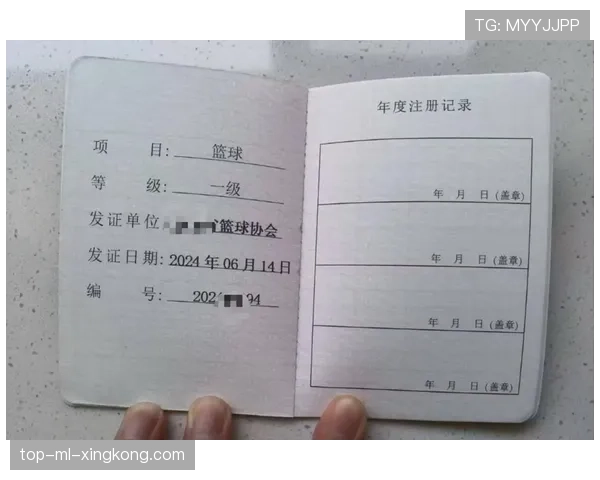 TG: MYYJJPP
项 目: 篮球
等 级: 一级
发证单位 篮球协会
发证日期: 2024 年 06 月 14 日
编 号: 202 94
年度注册记录
年 月 日 (盖章)
年 月 日 (盖章)
年 月 日 (盖章)
年 月 日 (盖章)
top-ml-xingkong.com